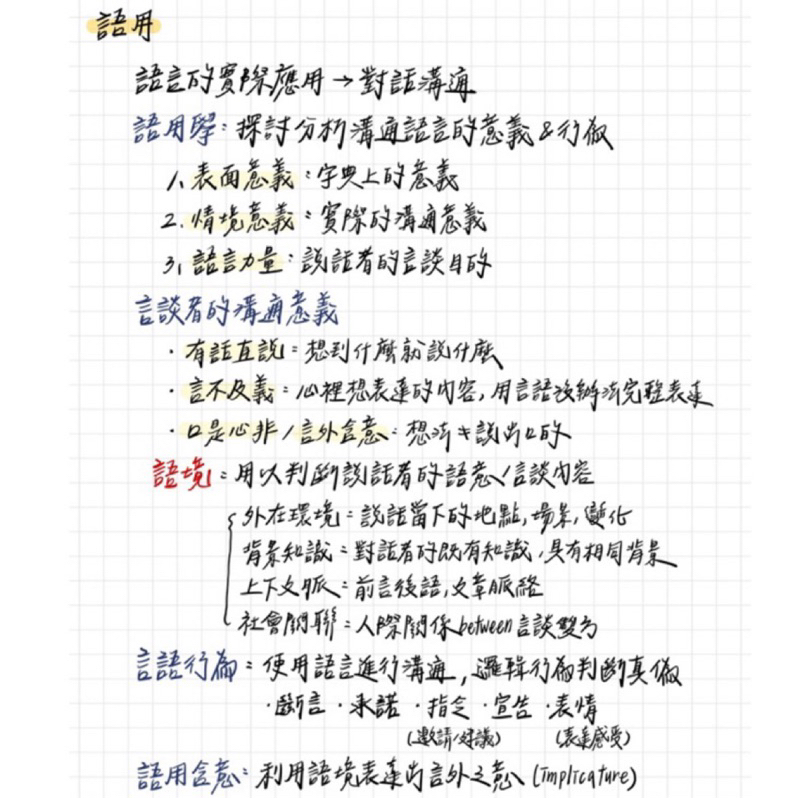 語用
語言的實際應用→對話溝通
語用學：探討分析溝通語言的意義&行為
1. 表面意義：字典上的意義
2. 情境意義：實際的溝通意義
3. 語言力量：說話者的言談目的
言談者的溝通意義
・有話直說：想到什麼就說什麼
・言不及義：心裡想表達的內容,用言語沒辦法完整表達
・口是心非/言外含意：想法≠說出口的
語境：用以判斷說話者的語意/言談內容
外在環境：說話當下的地點,場景,變化
背景知識：對話者的既有知識,具有相同背景
上下文脈：前言後語,文章脈絡
社會關聯：人際關係between言談雙方
言語行為：使用語言進行溝通,邏輯行為判斷真偽
・斷言・承諾・指令・宣告・表情
(邀請/建議) (表達感受)
語用含意：利用語境表達出言外之意 (implicature)